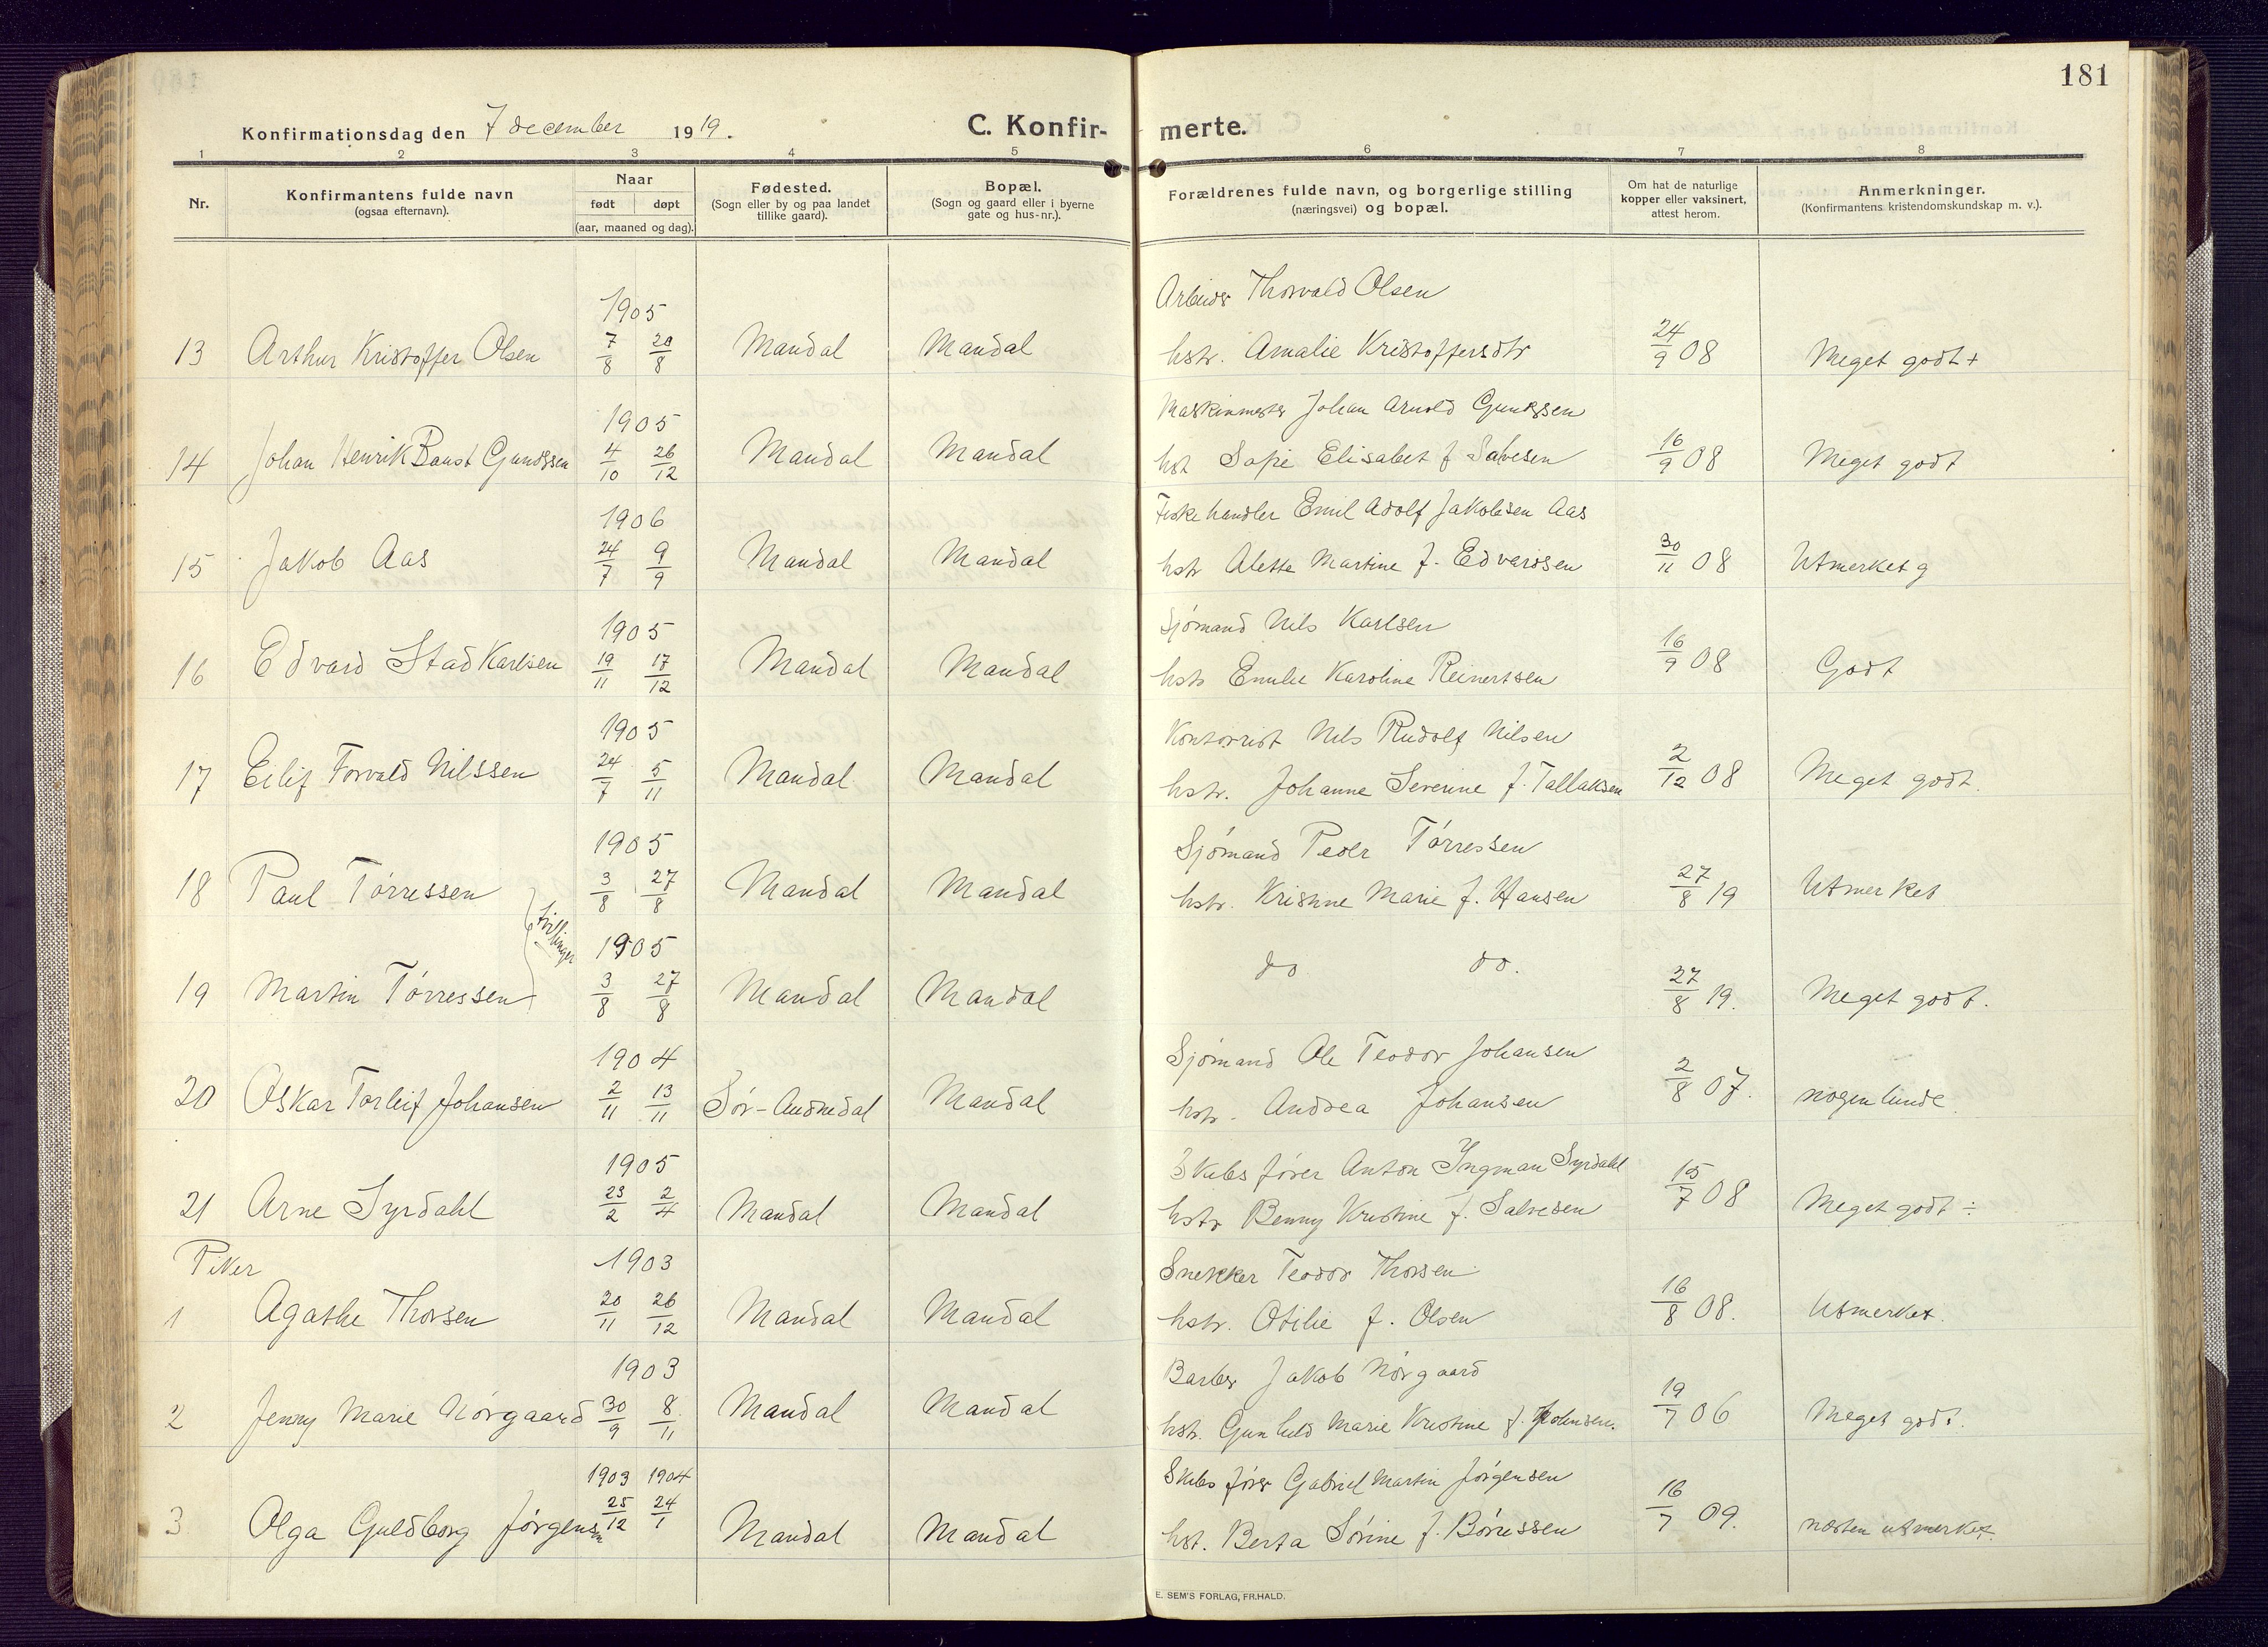 181
Konfirmationsdag den 7 december 1919.
C. Konfir-
merte.
1 2 3 4 5 6 7 8
Nr.
Konfirmantens fulde navn
(ogsaa efternavn).
Naar
født døpt
(aar, maaned og dag).
Fødested.
(Sogn eller by og paa landet
tillike gaard).
Bopæl.
(Sogn og gaard eller i byerne
gate og hus-nr.).
Forældrenes fulde navn, og borgerlige stilling
(næringsvei) og bopæl.
Om hat de naturlige
kopper eller vaksinert,
attest herom.
Anmerkninger.
(Konfirmantens kristendomskundskap m. v.).
1905 Arbeider Thorvald Olsen
13 Arthur Kristoffer Olsen 7/8 20/8 Mandal Mandal hstr. Amalie Kristoffersdtr 24/9 08 Meget godt +
1905 Maskinmester Johan Arnold Gundssen
14 Johan Henrik Gundssen 4/10 26/12 Mandal Mandal hst Sofie Elisabet f Salvesen 16/9 08 Meget godt
1906 Fiskehandler Emil Adolf Jakobsen Aas
15 Jakob Aas 24/7 9/9 Mandal Mandal hstr Alette Martine f. Edvardsen 30/11 08 Utmerket g
1905 Sjømand Nils Karlsen
16 Edvard Stad Karlsen 19/11 17/12 Mandal Mandal hstr Emilie Karoline Reinertsen 16/9 08 Godt
1905 Kontorist Nils Rudolf Nilsen
17 Eilif Torvald Nilssen 24/7 5/11 Mandal Mandal hstr. Johanne Severine f. Tallaksen 2/12 08 Meget godt.
1905 Sjømand Peder Tørressen
18 Paul Tørressen 3/8 27/8 Mandal Mandal hstr. Kristine Marie f. Hansen 27/8 19 Utmerket
tvillinger
1905 do do.
19 Martin Tørressen 3/8 27/8 Mandal Mandal 27/8 19. Meget godt.
1904 Sjømand Ole Teodor Johansen
20 Oskar Torleif Johansen 2/11 13/11 Sør-Audnedal Mandal hstr. Andrea Johansen 2/8 07. nogenlunde
1905 Skibsfører Anton Ingman Syrdahl
21 Arne Syrdahl 23/2 2/4 Mandal Mandal hstr Benny Kristine f. Salvesen 15/7 08 Meget godt ÷
Piker 1903 Snekker Teodor Thorsen
1 Agathe Thorsen 20/11 26/12 Mandal Mandal hstr. Otilie f. Olsen 16/8 08. Utmerket.
1903 Barber Jakob Nørgaard
2 Jenny Marie Nørgaard 30/9 8/11 Mandal Mandal hstr. Gunhild Marie Kristine f. 19/7 06 Meget godt.
1903 1904 Skibsfører Gabriel Martin Jørgensen
3 Olga Guldborg Jørgensen 25/12 24/1 Mandal Mandal hst. Berta Sørine f. Børressen 16/7 09. næsten utmerket.
E. SEM'S FORLAG, FR.HALD.